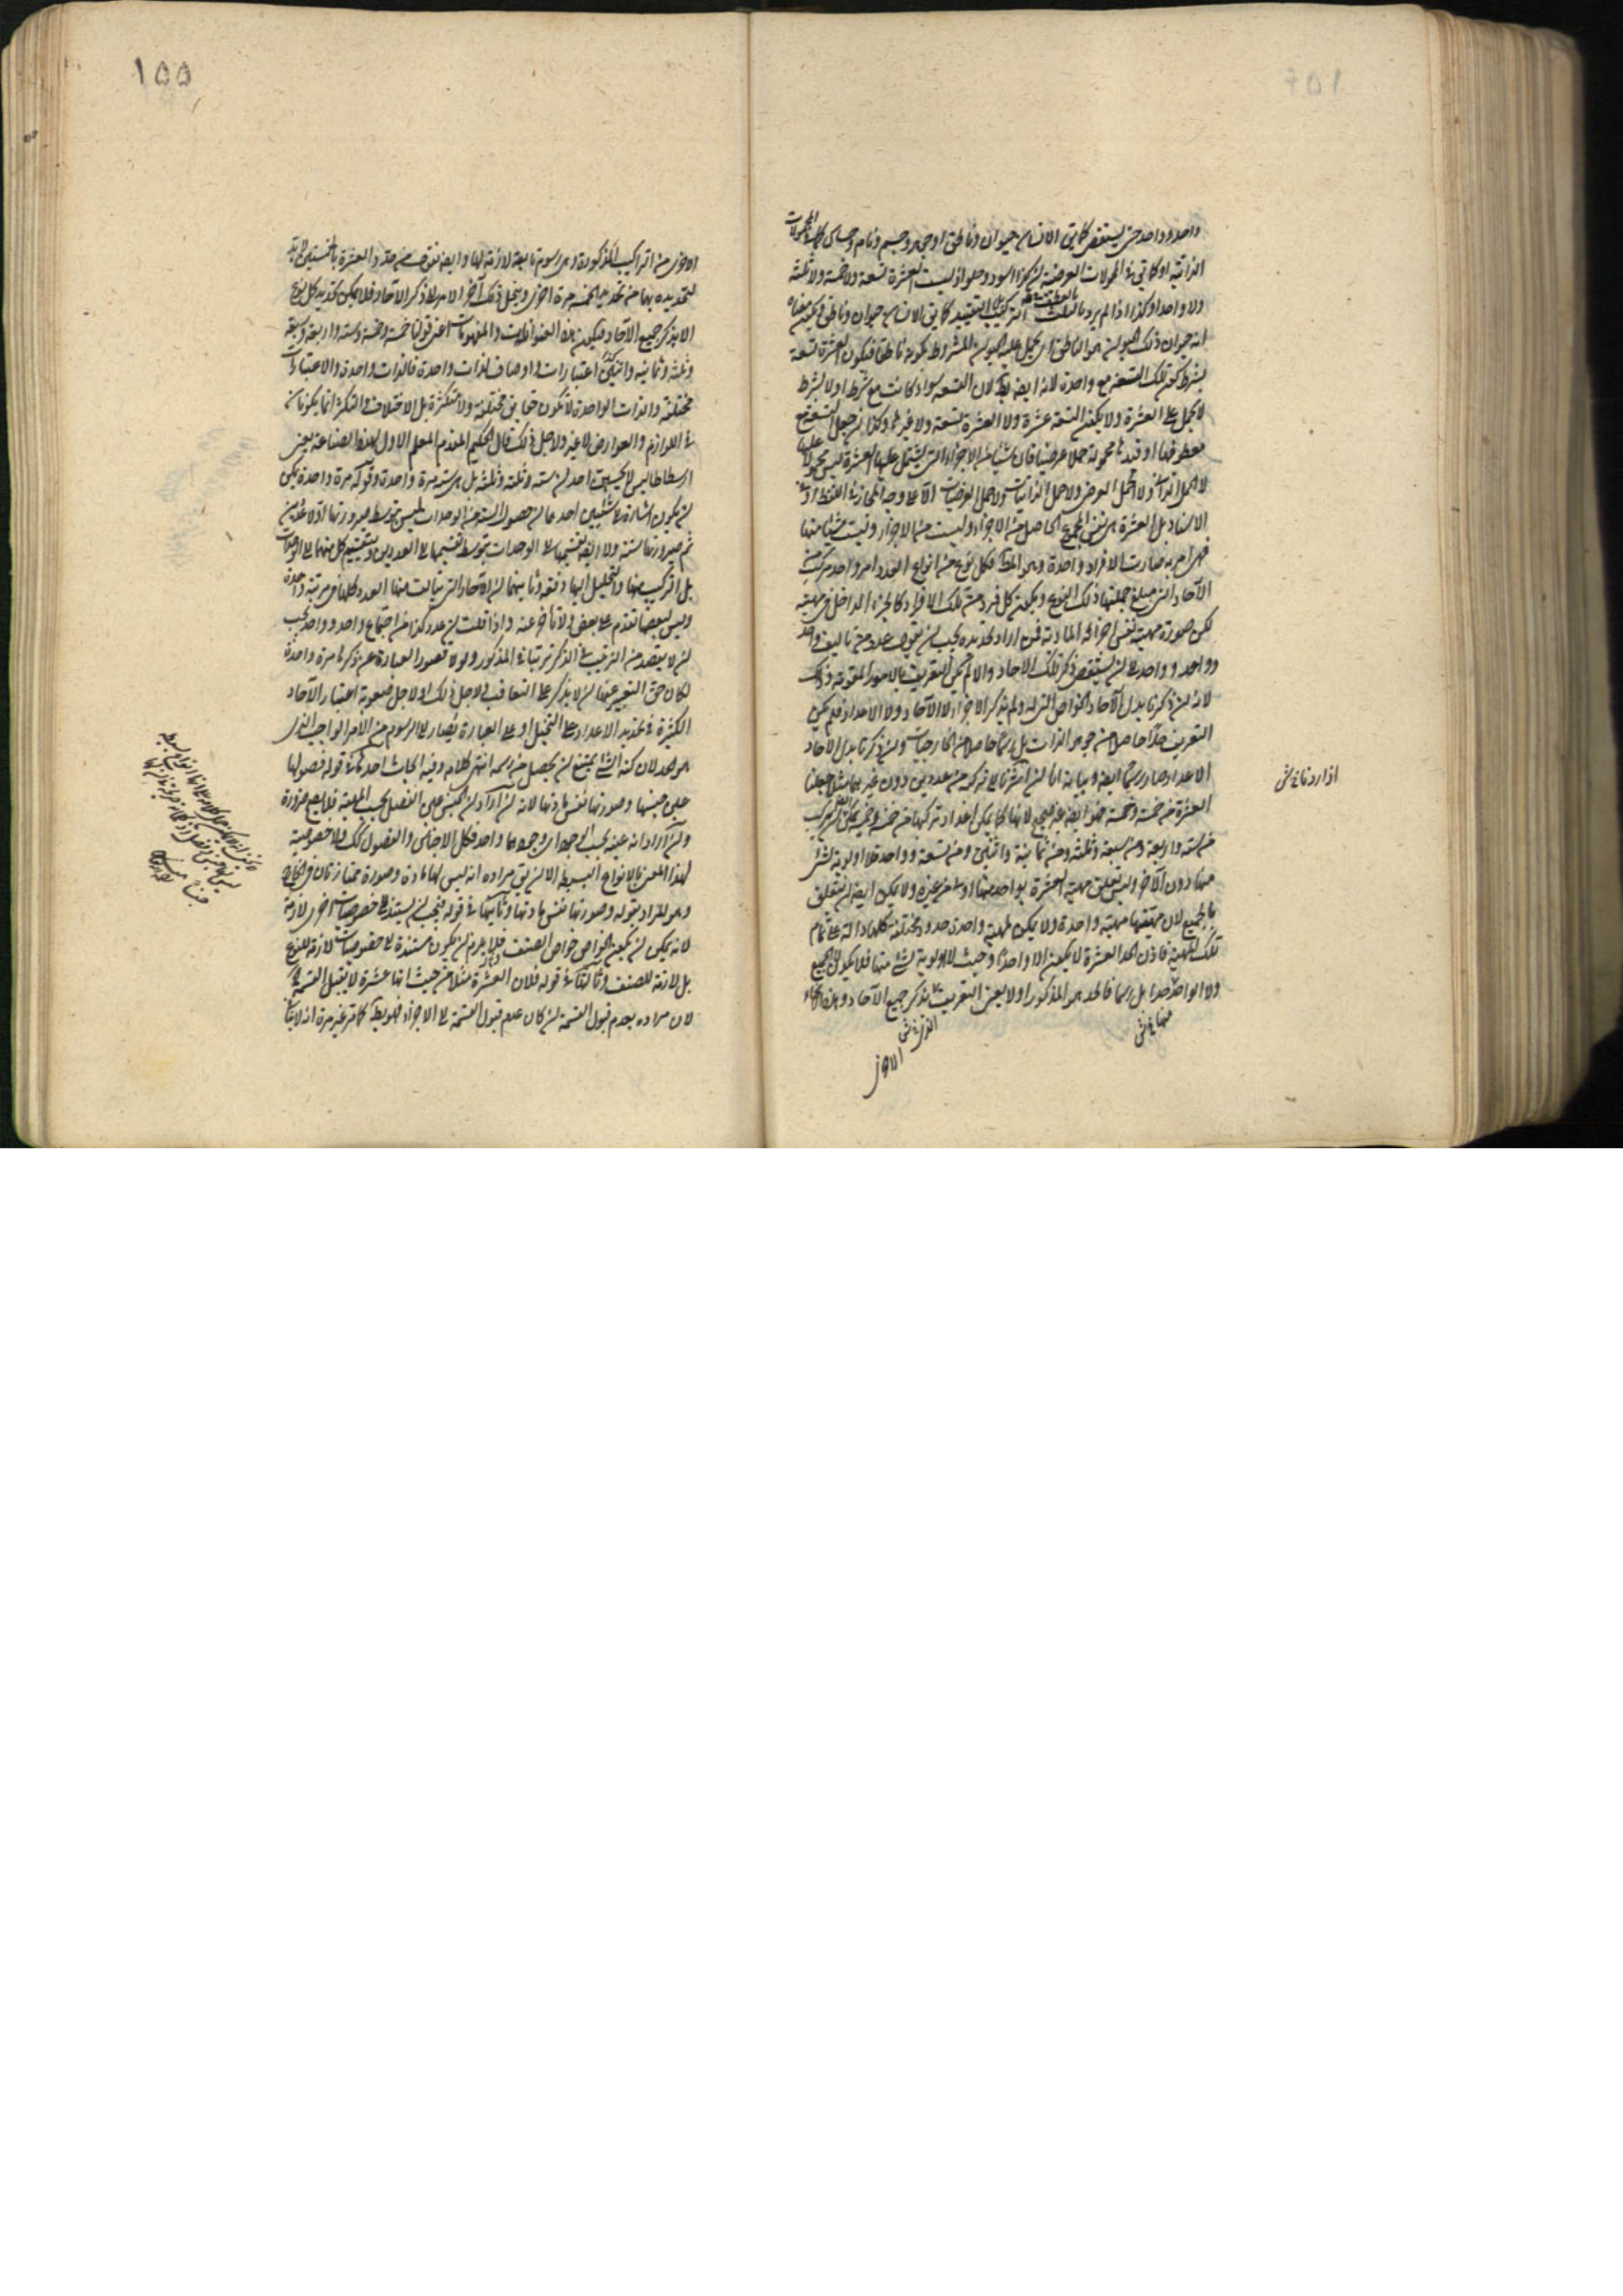 واحد وواحد حتى يستقصى كما يق الانسان حيوان وناطق او جوهر وجسم ونام وحساس كل المحمولات
الذاتية او كما يق في المحمولات العرضية ان كذا اسود وحلو اذ ليست العشرة تسعة ولا خمسة ولا ثلثة
ولا واحدا وكذا اذا لم يرد بالعطف التركيب التقييد كما يق الانسان حيوان وناطق ويكون معناه
انه حيوان ذلك الحيوان هو الناطق اى يحمل عليه الحيوان المشروط بكونه ناطقا فيكون العشرة تسعة
بشرط كون تلك التسعة مع واحدة لانه ايضا بط لان التسعة سواء كانت مع شرط او لا بشرط
لا يحمل على العشرة ولا يكون التسعة عشرة ولا العشرة تسعة ولا غيرها وكذا ان جعل التسعة مع
معطوفها او قيدها محمولة حملا عرضيا فان شيئا من الاجزاء التى يشتمل عليها العشرة ليس محمولا عليها
لا الحمل الذاتى ولا الحمل العرضى ولا حمل الذاتيات ولا حمل العرضيات الا على وجه المجاز فى اللفظ او فى
الاسناد بل العشرة هى نفس المجموع الحاصل من الاجزاء وليست من الاجزاء وليست شيئا منها
فهى امر به صارت الافراد واحدة وهو المط فكل نوع من انواع العدد امر واحد مركب من
الآحاد التى مبلغ جملتها ذلك النوع ويكون كل فرد من تلك الافراد كالجزء الداخل فى مهيته
لكن صورة مهيته نفس اجزائه المادية فمن اراد تحديده يجب ان يقول عدد من تاليف واحد
وواحد وواحد الى ان يستقصى ذكر تلك الاحاد والا لم يكن التعريف بالامور المقومة وذلك
لانه ان ذكر بدل الآحاد الخواص التى له ولم يذكر الاجزاء لا الآحاد ولا الاعداد فلم يكن
التعريف حدا حاصلا من جوهر الذات بل رسما حاصلا من الخارجيات وان ذكر بدل الاحاد
الاعداد صار رسما ايضا وبيانه انا ان اشرنا الى تركبه من عددين دون غيرهما مثلا جعلنا
العشرة من خمسة وخمسة فهو ايضا غير صحيح لانها كما يمكن اعداد تركبها من خمسة وخمسة يمكن ان تركب
من ستة واربعة ومن سبعة وثلثة ومن ثمانية واثنين ومن تسعة وواحد فلا اولوية لشئ
منها دون الآخر وليس تعلق مهية العشرة بواحد منها اولى من غيره ولا يمكن ايضا ان يتعلق
بالجميع لان مهيتها مهية واحدة ولا يمكن لمهية واحدة حدود مختلفة كلها دالة على تمام
تلك المهية فاذن الحد العشرة لا يكون الا واحدا وحيث لا اولوية لشئ منها فلا يكون الجميع
ولا الواحد حدا بل رسما فالحد هو المذكور اولا يعنى التعريف بذكر جميع الآحاد وهذه الانحاء
منها خ ش
الذى خ ش
الاخرى
اذا اردنا خ ش
١٥٥
الاخرى من التراكيب المذكورة هى رسوم تابعة لازمة لها وايضا توقف حد العشرة بالخمستين يحتاج
لتحديده بها من تحديد الخمسة مرة اخرى وينحل ذلك آخر الامر الى ذكر الآحاد فلا يمكن تحديد كل نوع
الا بذكر جميع الآحاد فيكون هذه العنوانات والمفهومات اعنى قولنا خمسة وخمسة وستة واربعة وسبعة
وثلثة وثمانية واثنين اعتبارات واوصاف لذات واحدة فالذات واحدة والاعتبارات
مختلفة والذات الواحدة لا تكون حقايق مختلفة ولا متكثرة بل الاختلاف والتكثر انما يكونان
فى اللوازم والعوارض لا غير ولاجل ذلك قال الحكيم المقدم المعلم الاول لهذه الصناعة يعنى
ارسطاطاليس لا تحسبن احد ان ستة وثلثة وثلثة بل هى ستة مرة واحدة وقوله مرة واحدة يمكن
ان يكون اشارة الى شيئين احدهما ان حصول الستة من الوحدات ليس بتوسط صيرورتها اولا عددين
ثم صيرورتها ستة ولا ايضا تقسيمها الى الوحدات بتوسط تقسيمها الى العددين وتقسيم كل منهما الى الوحدات
بل التركيب منها والتحليل اليها دفعة وثانيهما ان الآحاد التى تتالف منها العدد كلها فى مرتبة واحدة
وليس لبعضها تقدم على بعض ولا تأخر عنه واذا قلت ان عدد كذا من اجتماع واحد وواحد يجب
ان لا يقصد من الترتيب فى الذكر ترتبا فى المذكور ولولا قصور العبارة عن ذكرها مرة واحدة
لكان حق التعبير عنها ان لا يذكر على التعاقب ولاجل ذلك او لاجل صعوبة اعتبار الآحاد
الكثيرة فى تحديد الاعداد على التخيل او على العبارة يصار الى الرسوم من الامر الواجب الذى
هو الحد لان كنه الشئ يمتنع ان يحصل من رسمه انتهى كلامه وفيه ابحاث احدها فى قوله فصولها
هى جنسها وصورتها نفس مادتها لانه ان اراد ان الجنس عين الفصل بحسب المهية فلا يصح ضرورة
وان اراد انه عينه بحسب الوجود اى وجودهما واحد فكل الاجناس والفصول كذلك ولا خصوصية
لهذا المعنى بالانواع البسيطة الا ان يق مراده انه ليس لها مادة وصورة ممتازتان فى الخارج
وهو المراد بقوله وصورتها نفس مادتها وثانيها فى قوله فيجب ان يستند الى خصوصيات اخرى لازمة
لانه يمكن ان يكون الخواص خواص الصنف فلا يلزم ان يكون مستندة الى خصوصيات لازمة للنوع
بل لازمة للصنف وثالثها فى قوله فلان العشرة مثلا من حيث انها عشرة لا يقبل القسمة
لان مراده بعدم قبول القسمة ان كان عدم قبول القسمة الى الاجزاء فهو بط كما مر غير مرة انه لا ينافى